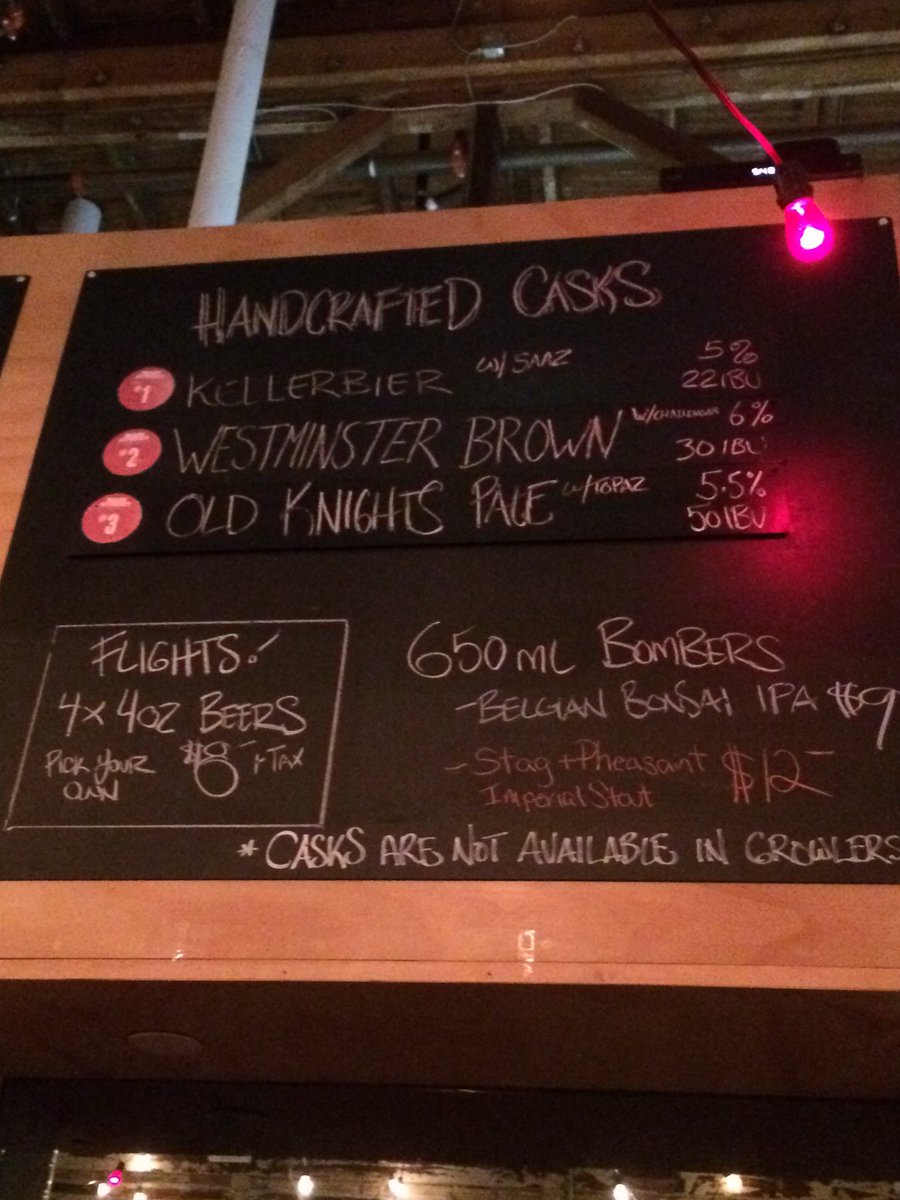 HANDCRAFTED CASKS
#1 KELLERBIER W/ SAAZ 5%
22 IBU
#2 WESTMINSTER BROWN W/CHALLENGER 6%
30 IBU
#3 OLD KNIGHTS PALE W/TOPAZ 5.5%
50 IBU
FLIGHTS!
4X 4OZ BEERS
PICK YOUR OWN $8 + TAX
650ML BOMBERS
- BELGIAN BONSAI IPA $9
- Stag + Pheasant Imperial Stout $12
* CASKS ARE NOT AVAILABLE IN GROWLERS